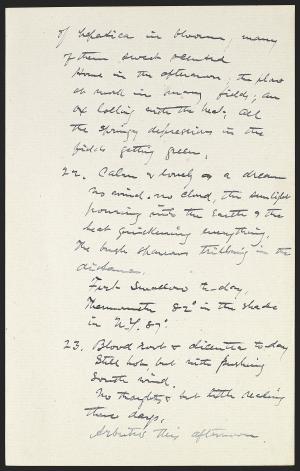 of hepatica in bloom, many
of them sweet scented
Home in the afternoon; the plow
at work in many fields; an
ox lolling with the heat. All
the springy depressions in the
fields getting green.
22. Calm & lovely as a dream
no wind, no cloud, the sunlight
pouring into the Earth & the
heat quickening everything.
The bush sparrow trilling in the
distance.
First Swallow to-day.
Thermometer 82° in the shade
in N.Y. 89°.
23. Blood root & dicentra to day
Still hot, but with freshing
South wind.
No thoughts & but little reading
these days.
Arbutus this afternoon.